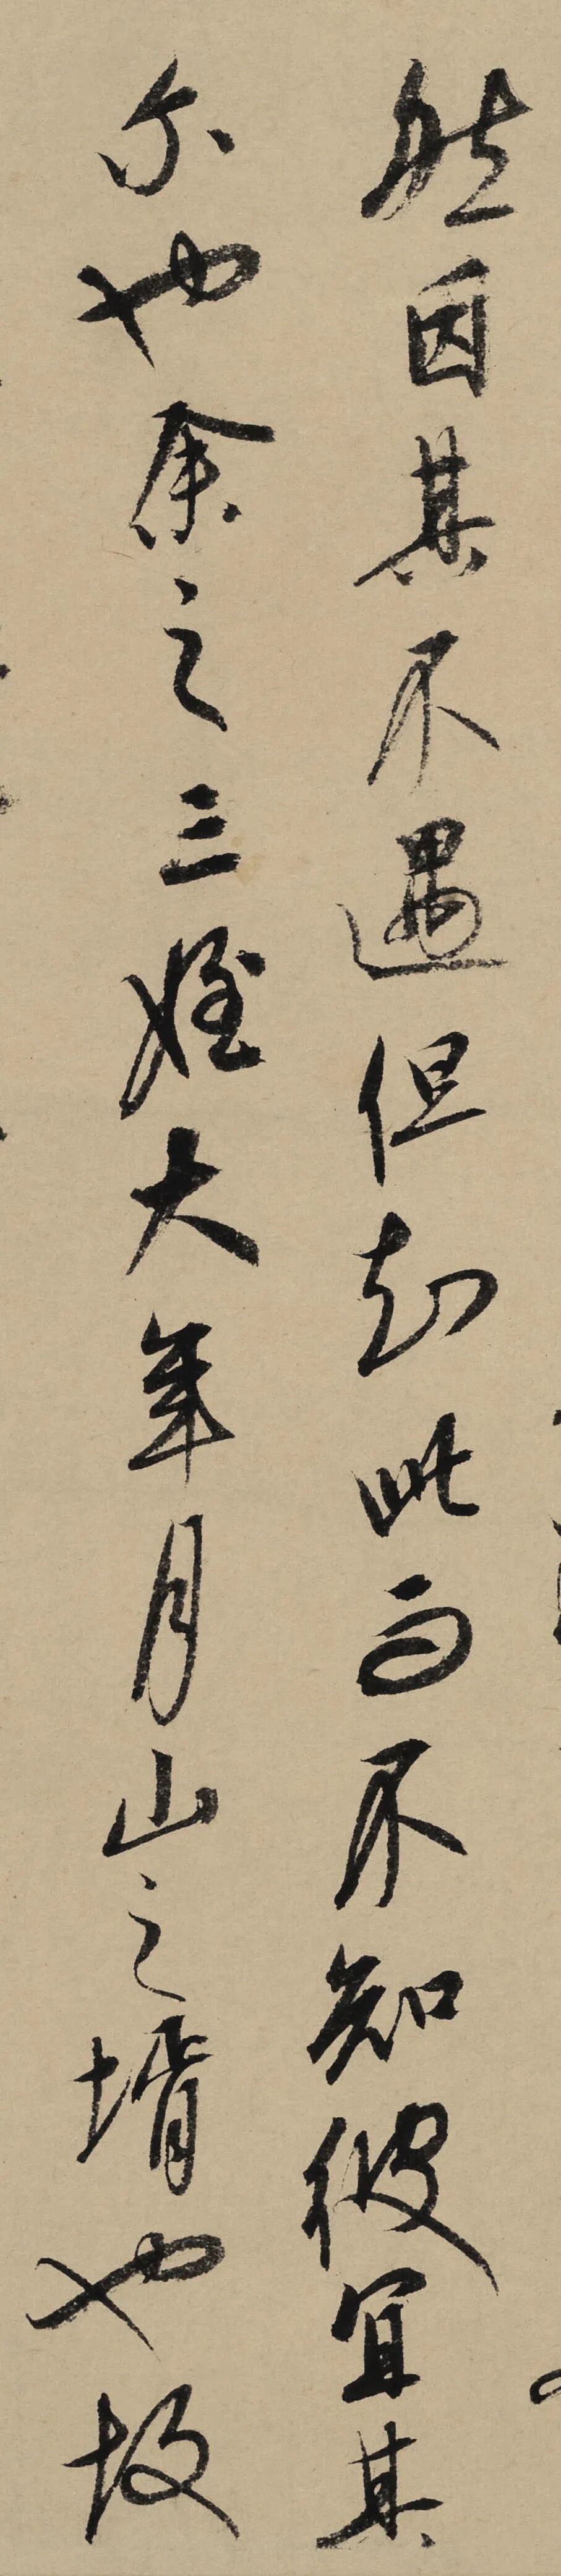 然因其不遇但知此而不知彼宜其
尔也余之三姪大年月山之壻也故